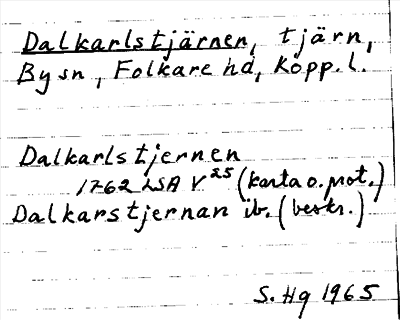 Dalkarlstjärnen, tjärn,
By sn, Folkare hd, Kopp. l.
Dalkarlstjernen
1762 LSA V 25 (karta o. prot.)
Dalkarstjernan ib. (beskr.)
S. Hg 1965